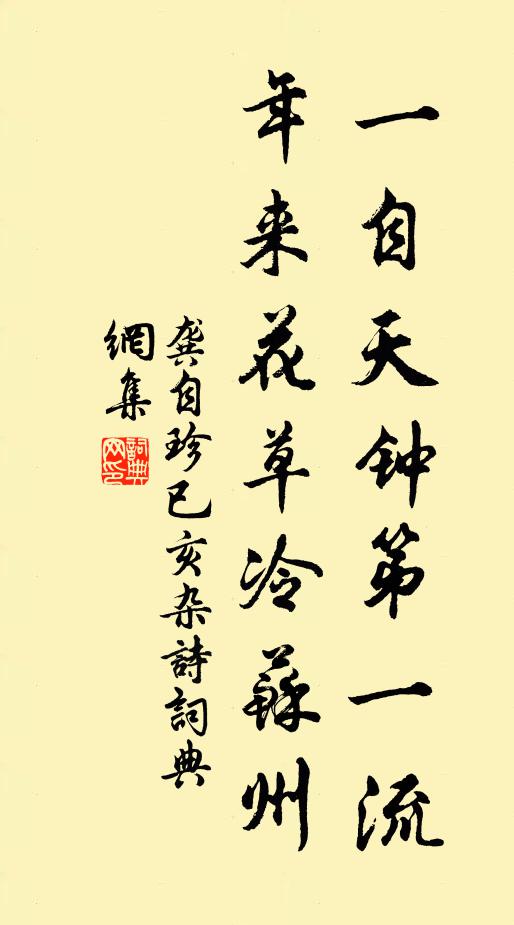 一自天钟第一流
年来花草冷蘇州
龚自珍己亥杂詩詞典
網集
詞典
网印